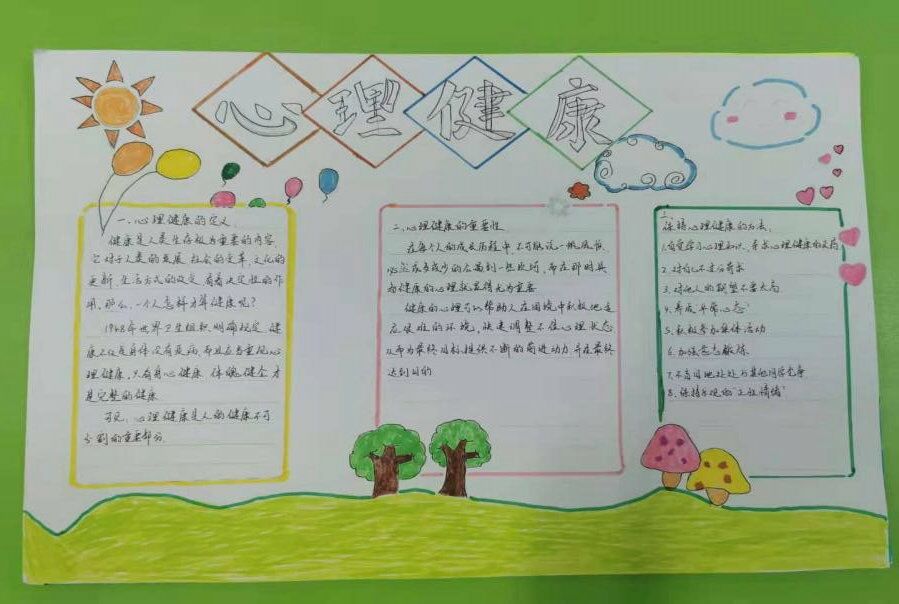 心理健康
一、心理健康的定义
健康是人类生存极为重要的内容,
它对于人类的发展,社会的变革,文化的
更新,生活方式的改变,有着决定性的作
用。那么,一个人怎样才算健康呢?
1948年世界卫生组织明确规定,健
康不仅是身体没有疾病,而且应当重视心
理健康,只有身心健康、体魄健全,才
是完整的健康
可见,心理健康是人的健康不可
分割的重要部分.
二、心理健康的重要性
在每个人的成长历程中,不可能说一帆风顺
心定或多或少的会遇到一些坎坷,而在那时具
有健康的心理就显得尤为重要
健康的心理可以帮助人在困境中积极地适
应艰难的环境,快速调整不佳心理状态
从而为最终目标提供不断的前进动力,并在最终
达到目的
三、
保持心理健康的方法:
1.自觉学习心理知识、寻求心理健康的
2.对自己不过分苛求
3.对他人的期望不要太高
4.养成平常心态
5.积极参加集体活动
6.加强意志锻炼
7.不盲目地处处与其他同学竞争
8.保持乐观的"正性情绪"